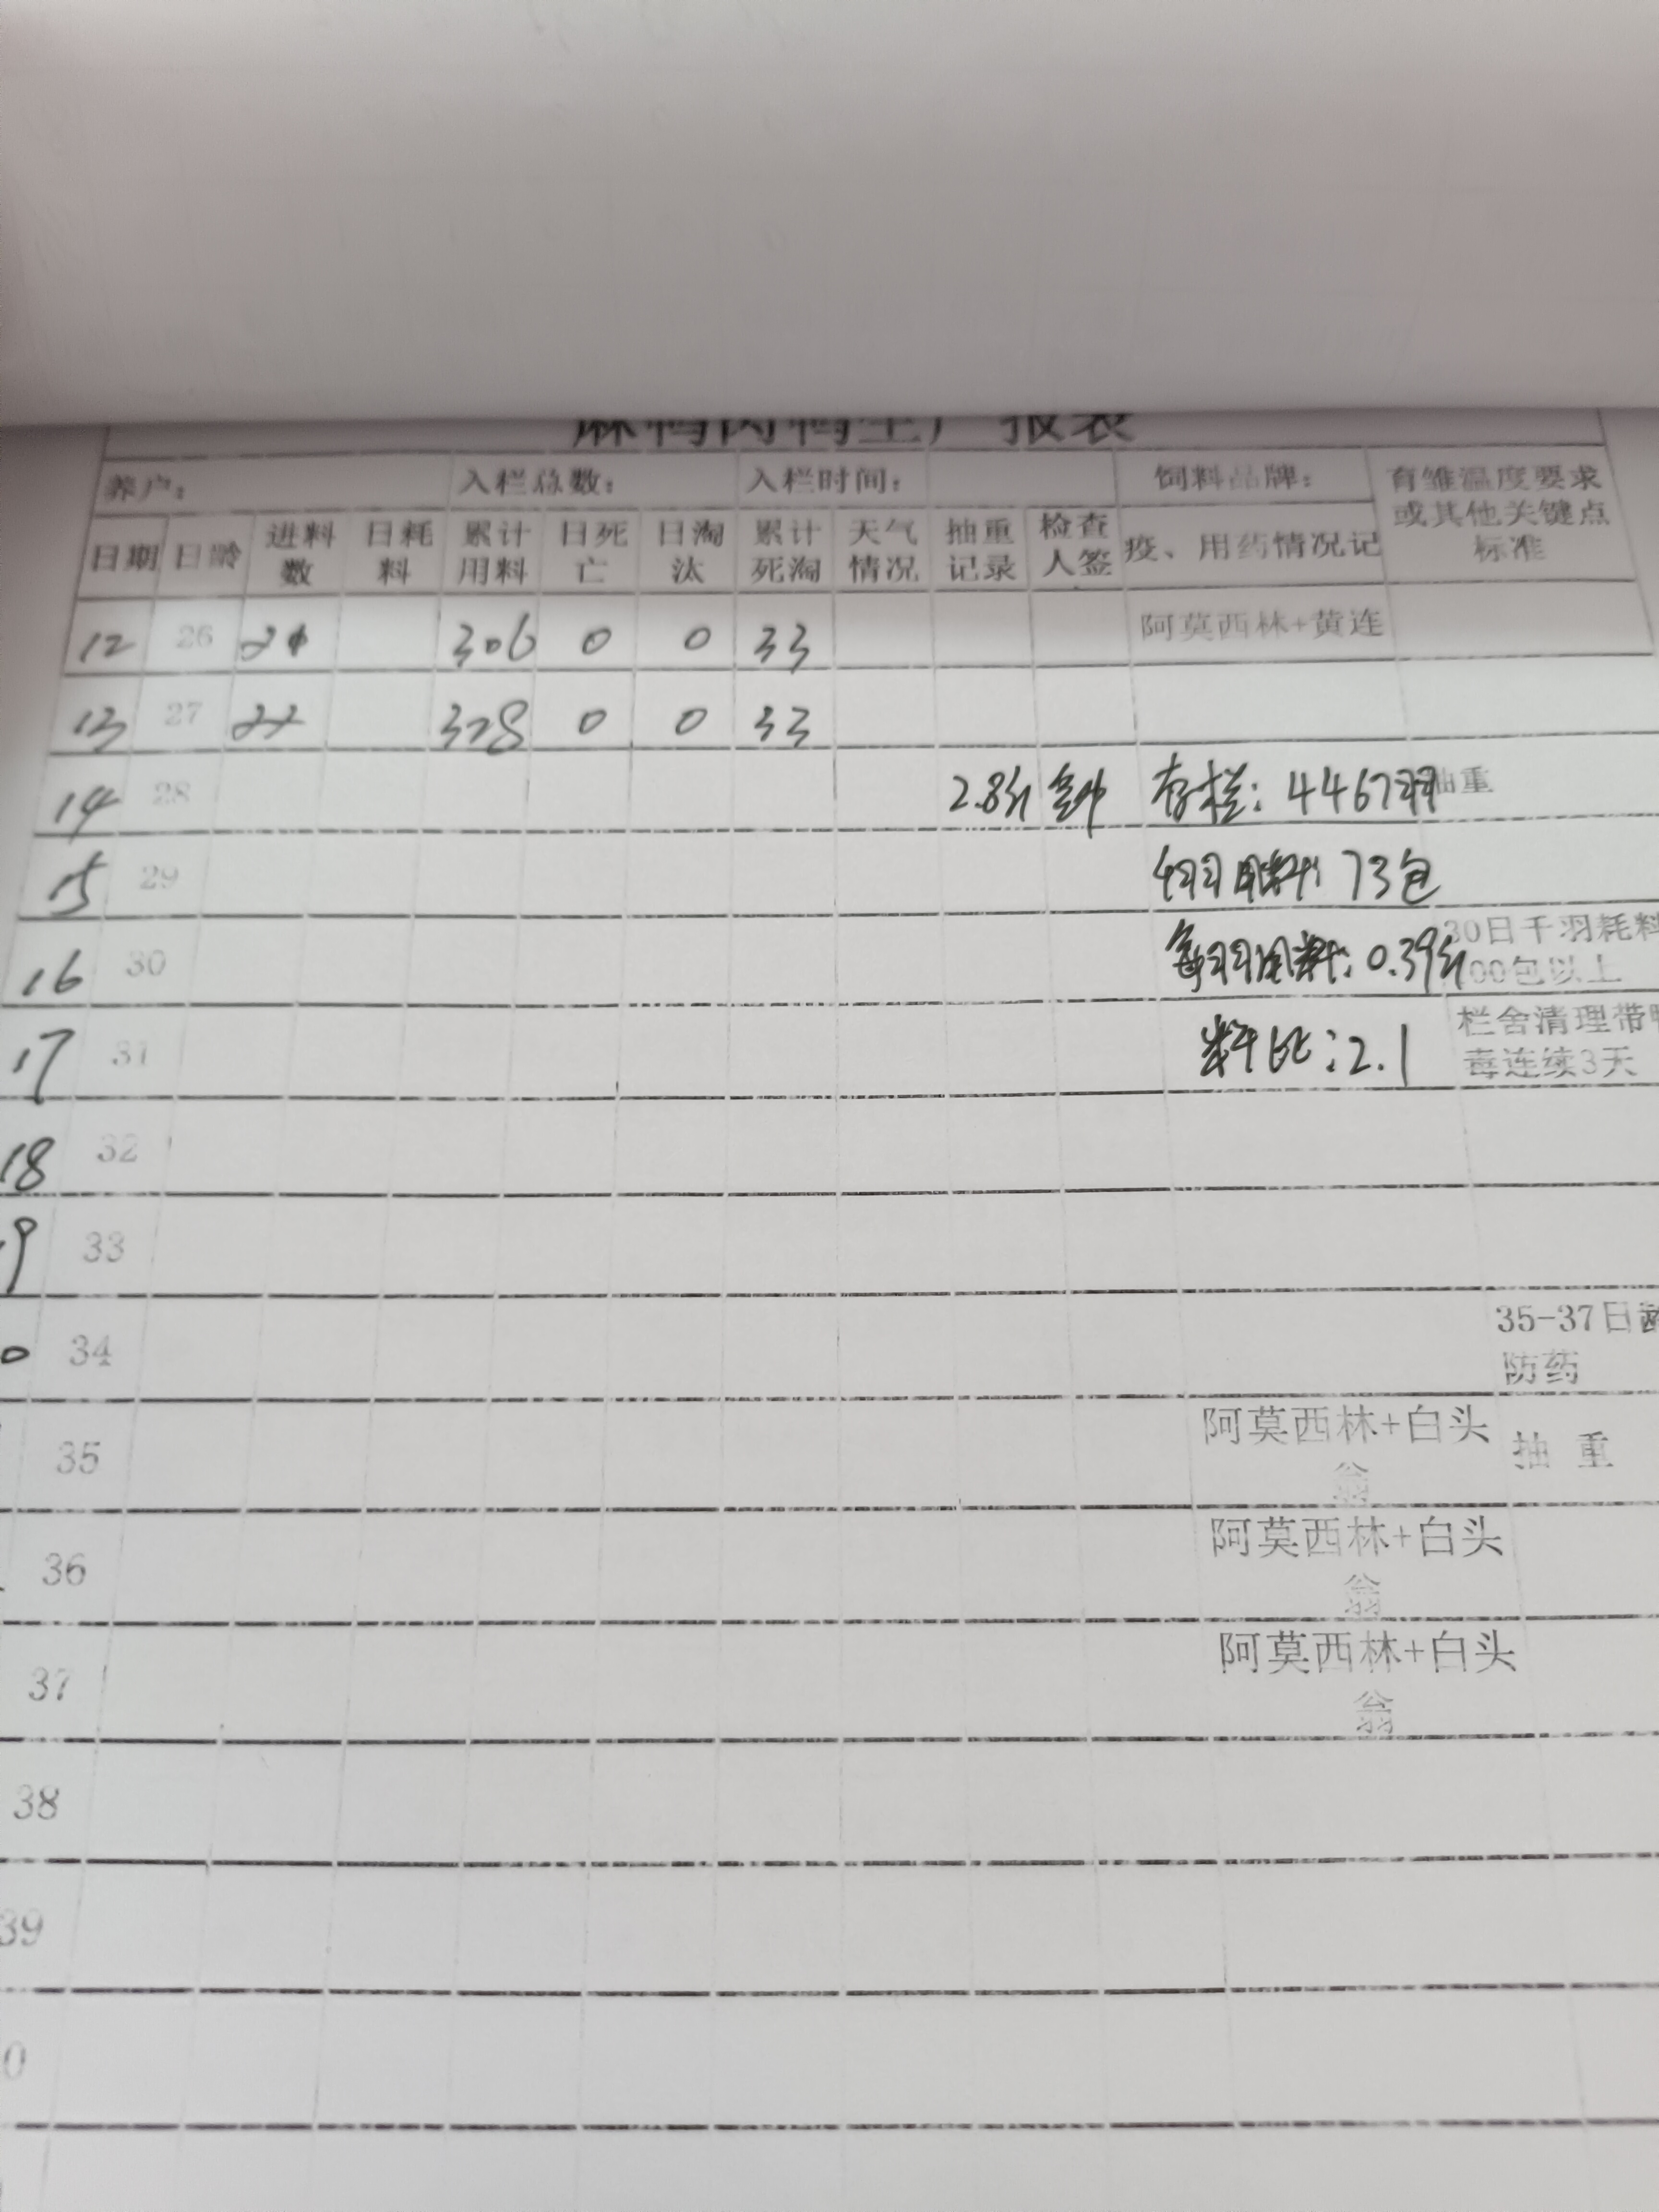 麻鸭肉鸭生产报表
养户： 入栏总数： 入栏时间： 饲料品牌： 育雏温度要求或其他关键点标准
日期 日龄 进料数 日耗料 累计用料 日死亡 日淘汰 累计死淘 天气情况 抽重记录 检查人签 疫、用药情况记
12 26 306 0 0 33 阿莫西林+黄连
13 27 22 328 0 0 33
14 28 2.8斤 存栏：4467羽 抽重
15 29 料：73包
16 30 每羽用料：0.39斤 30日千羽耗料
00包以上
17 31 料比：2.1 栏舍清理带
毒连续3天
18 32
9 33
0 34 35-37日龄
防药
35 阿莫西林+白头翁 抽 重
36 阿莫西林+白头翁
37 阿莫西林+白头翁
38
39
0